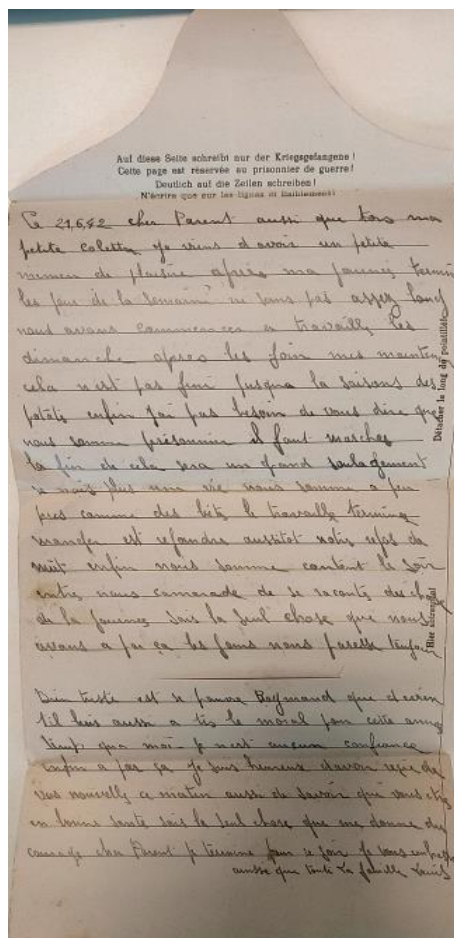 Auf diese Seite schreibt nur der Kriegsgefangene!
Cette page est réservée au prisonnier de guerre!
Deutlich auf die Zeilen schreiben!
N'écrire que sur les lignes et lisiblement!
Ce 21.6.42 cher Parent aussi que tors ma
petite colette je viens d'avoir un petite
momen de plaisire après ma journés
les jour de la semaine ne sons pas assez
nous avons commences a travaille les
dimanche apres les foin mes
cela n'est pas fini jusqua la saisons des
patats enfin j'ai pas besoin de vous dire que
nous somme prisonnier il faut marches
la fin de cela sera un grand soulagement
plus une vie nous somme a peu
pres comme des bêtes le travaille termine
manger est notre repos da
nuit enfin nous somme contant le soir
entre nous camarade de se raconte des
de la journes sais la seul chose que nous
avons a par ça les jours nous paresse
Détacher le long du pointillé!
Hier abtrennen!
Bien triste est se pauvre Raymond que
lui aussi a le moral pour cette
moi je n'est aucun confiance
Enfin a par ça je suis heureus d'avoir
vos nouvelle ce matin aussi de savoir que vous
en bonne sante sais le seul chose que me donne du
courage cher Parent je termine pour ce soir je vous
ainsse que toute la famille Louis